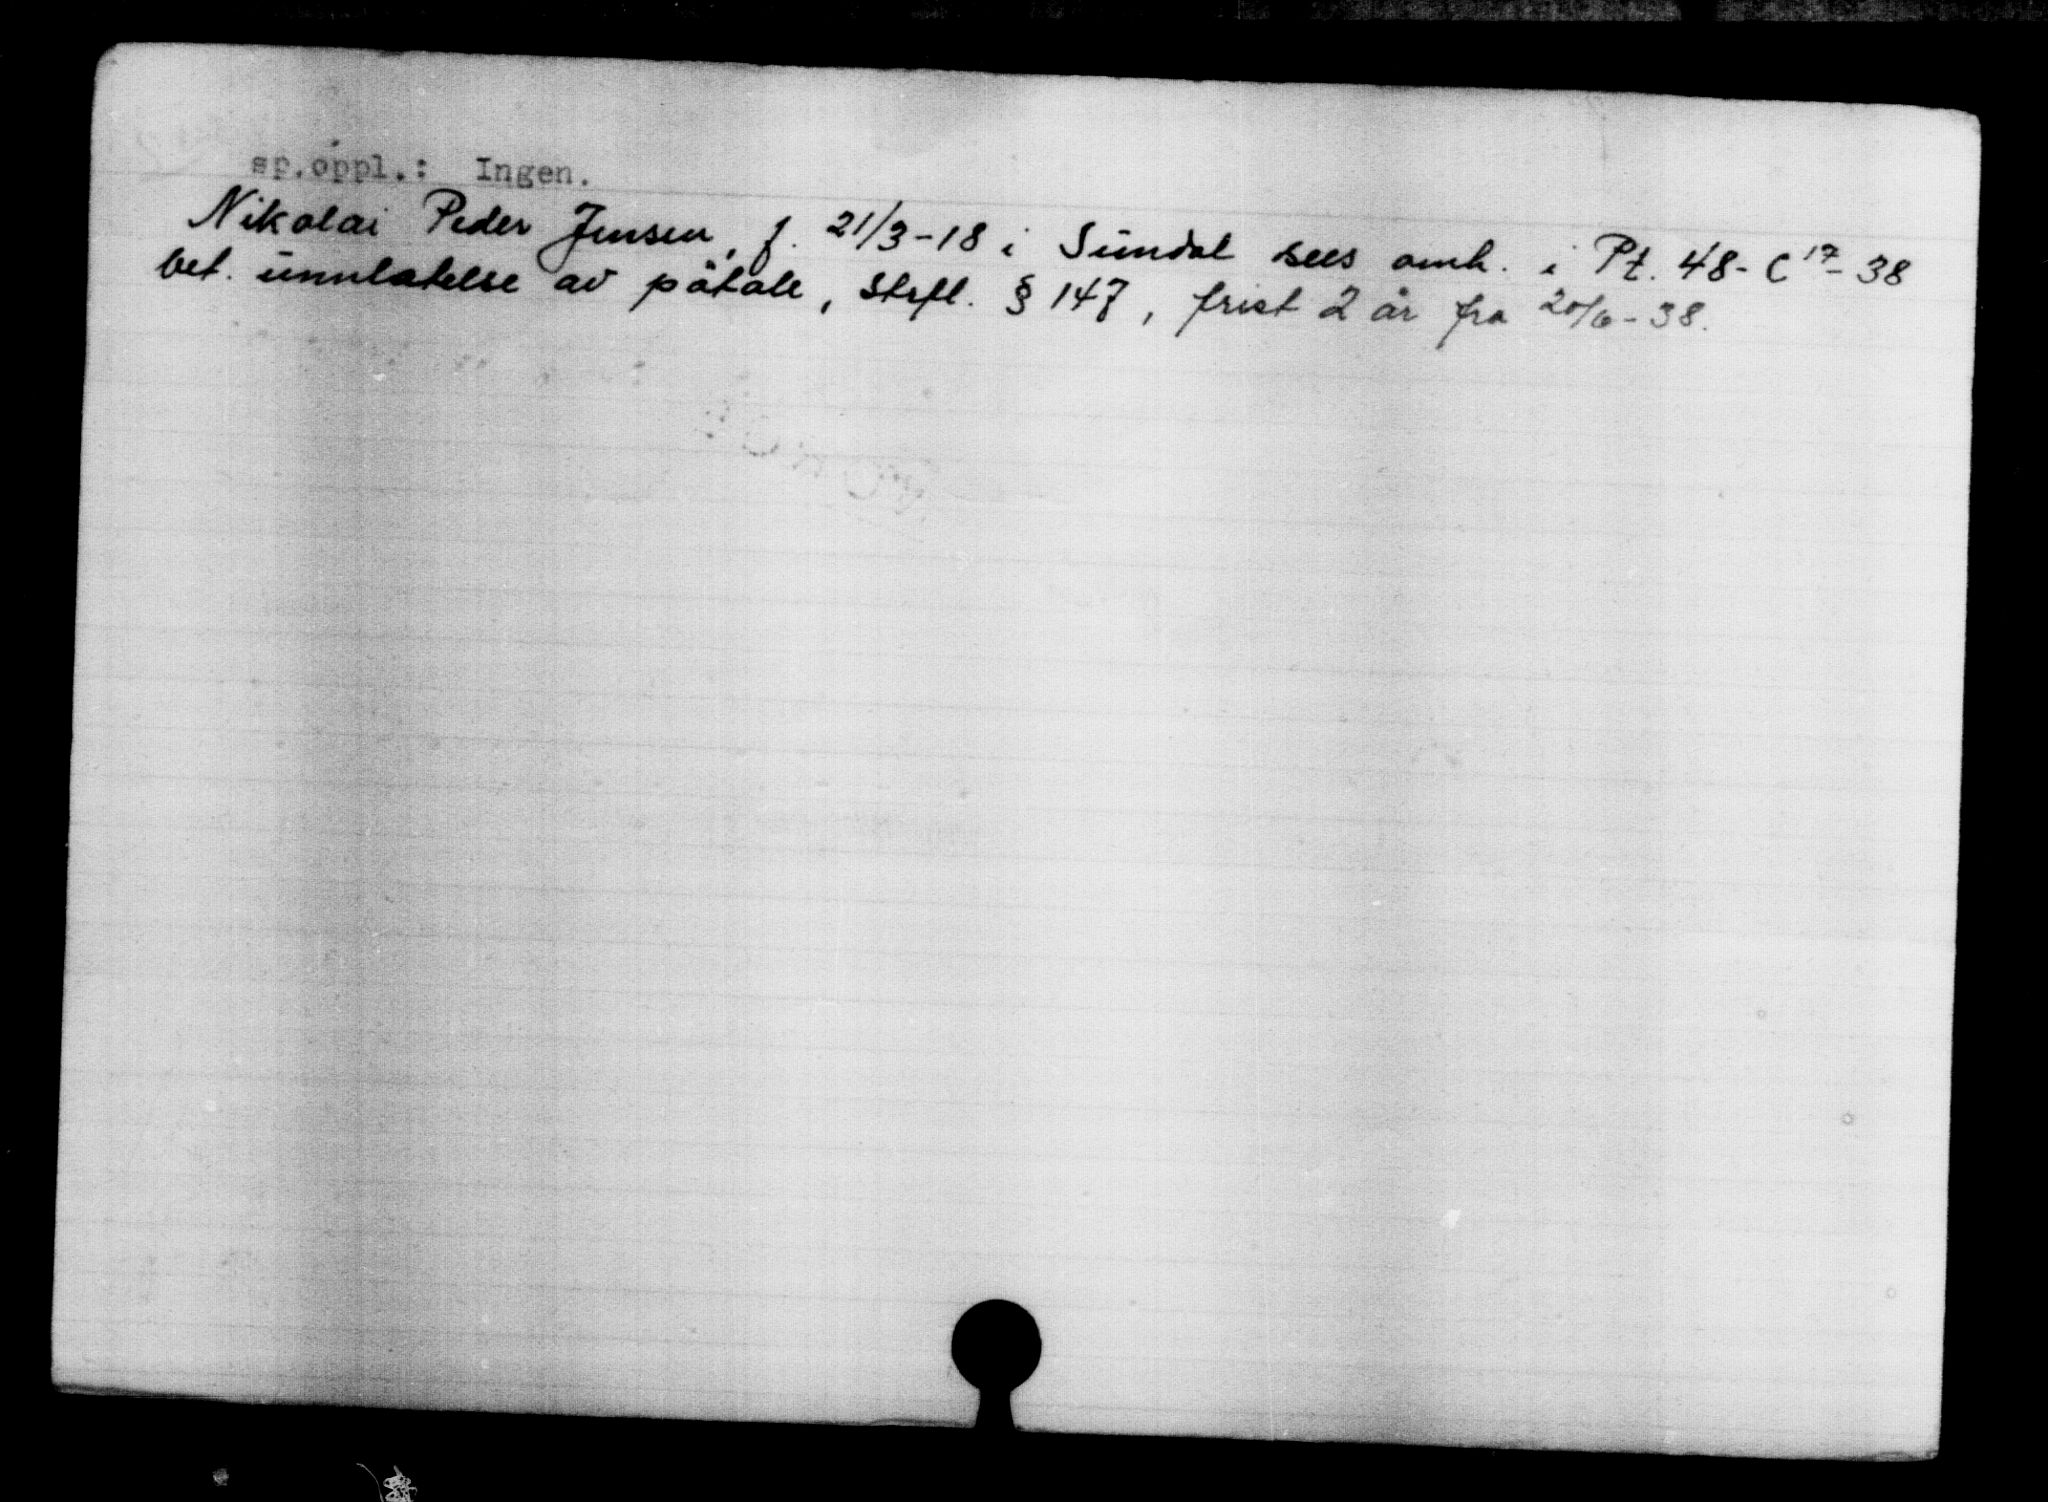 sp.oppl.: Ingen.
Nikolai Peder Jensen, f. 21/3-18 i Sundal sees omh. i Pt. 48-C 17-38
bet. unnlatelse av påtale, Strfl. § 147, frist 2 år fra 20/6-38.